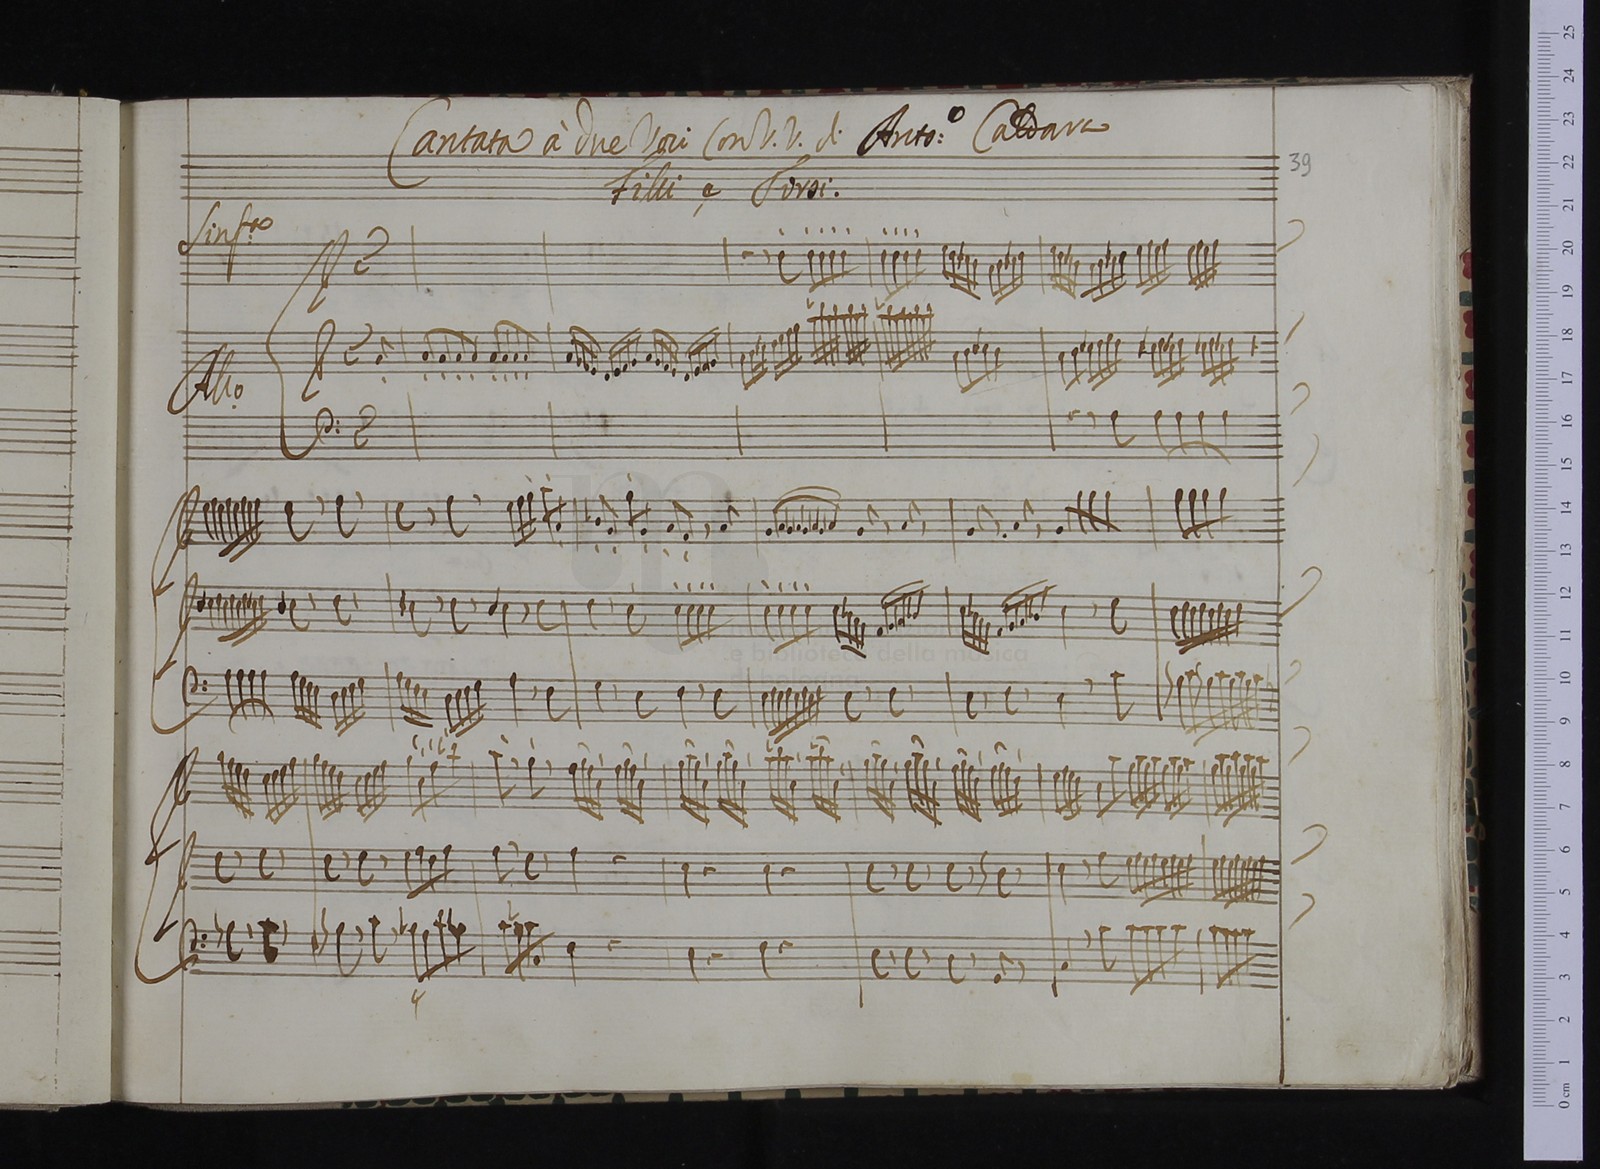 Cantata à due Voci Con V. V. di Anto:º Caldara
39
Filli e Tirsi.
Sinf.ª
Allº
e biblioteca della musica
4
25
24
23
22
21
20
19
18
17
16
15
14
13
12
11
10
9
8
7
6
5
4
3
2
1
0 cm